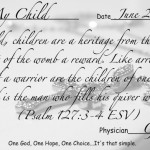 My Child Date June 2
s, children are a heritage from th
of the womb a reward. Like arro
f a warrior are the children of one
is the man who fills his quiver w
(Psalm 127:3-4 ESV)
Physician
One God, One Hope, One Choice...It's that simple.